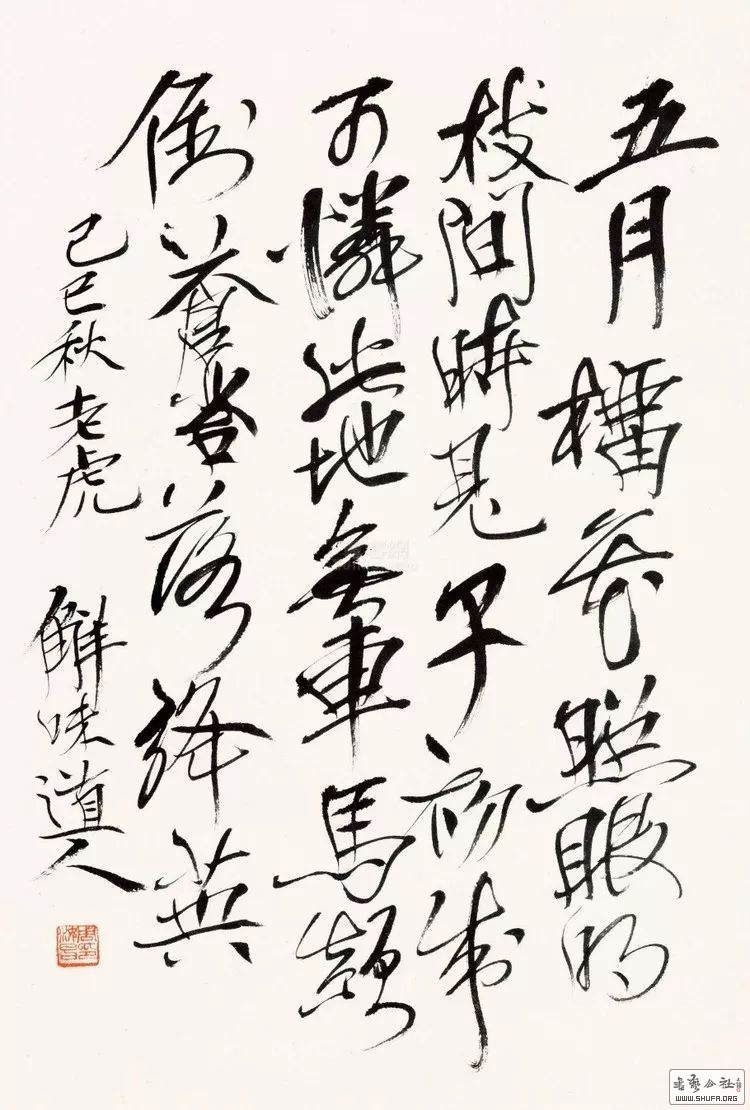 五月榴花照眼明
枝間時見子初成
可憐此地無車馬顛
倒蒼苔落絳英
己巳秋老虎
解味道人
書藝公社
WWW.SHUFA.ORG